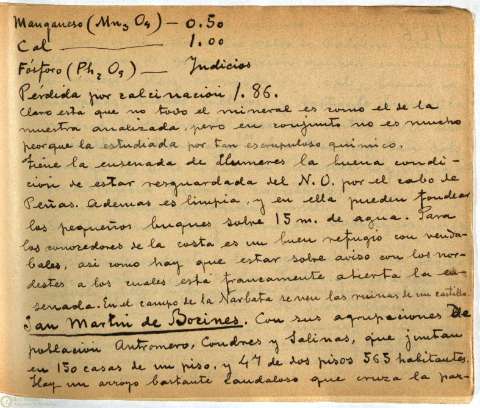 Manganeso (Mn₃ O₄) — 0.50
Cal ———— 1.00
Fósforo (Ph₂ O₅) — Indicios
Pérdida por calcinación 1.86.
Claro está que no todo el mineral es como el de la
muestra analizada, pero en conjunto no es mucho
peor que la estudiada por tan escrupuloso químico.
Tiene la ensenada de Llumeres la buena condi-
ción de estar resguardada del N.O. por el cabo de
Peñas. Ademas es limpia, y en ella pueden fondear
los pequeños buques sobre 15 m. de agua. Para
los conocedores de la costa es un buen refugio con venda-
bales, asi como hay que estar sobre aviso con los nor-
destes a los cuales está francamente abierta la en-
senada. En el campo de la Narbata se ven las ruinas de un castillo.
San Martin de Bocines. Con sus agrupaciones De
población Antromero, Condres y Salinas, que juntan
en 150 casas de un piso, y 47 de dos pisos 565 habitantes.
Hay un arroyo bastante caudaloso que cruza la par-